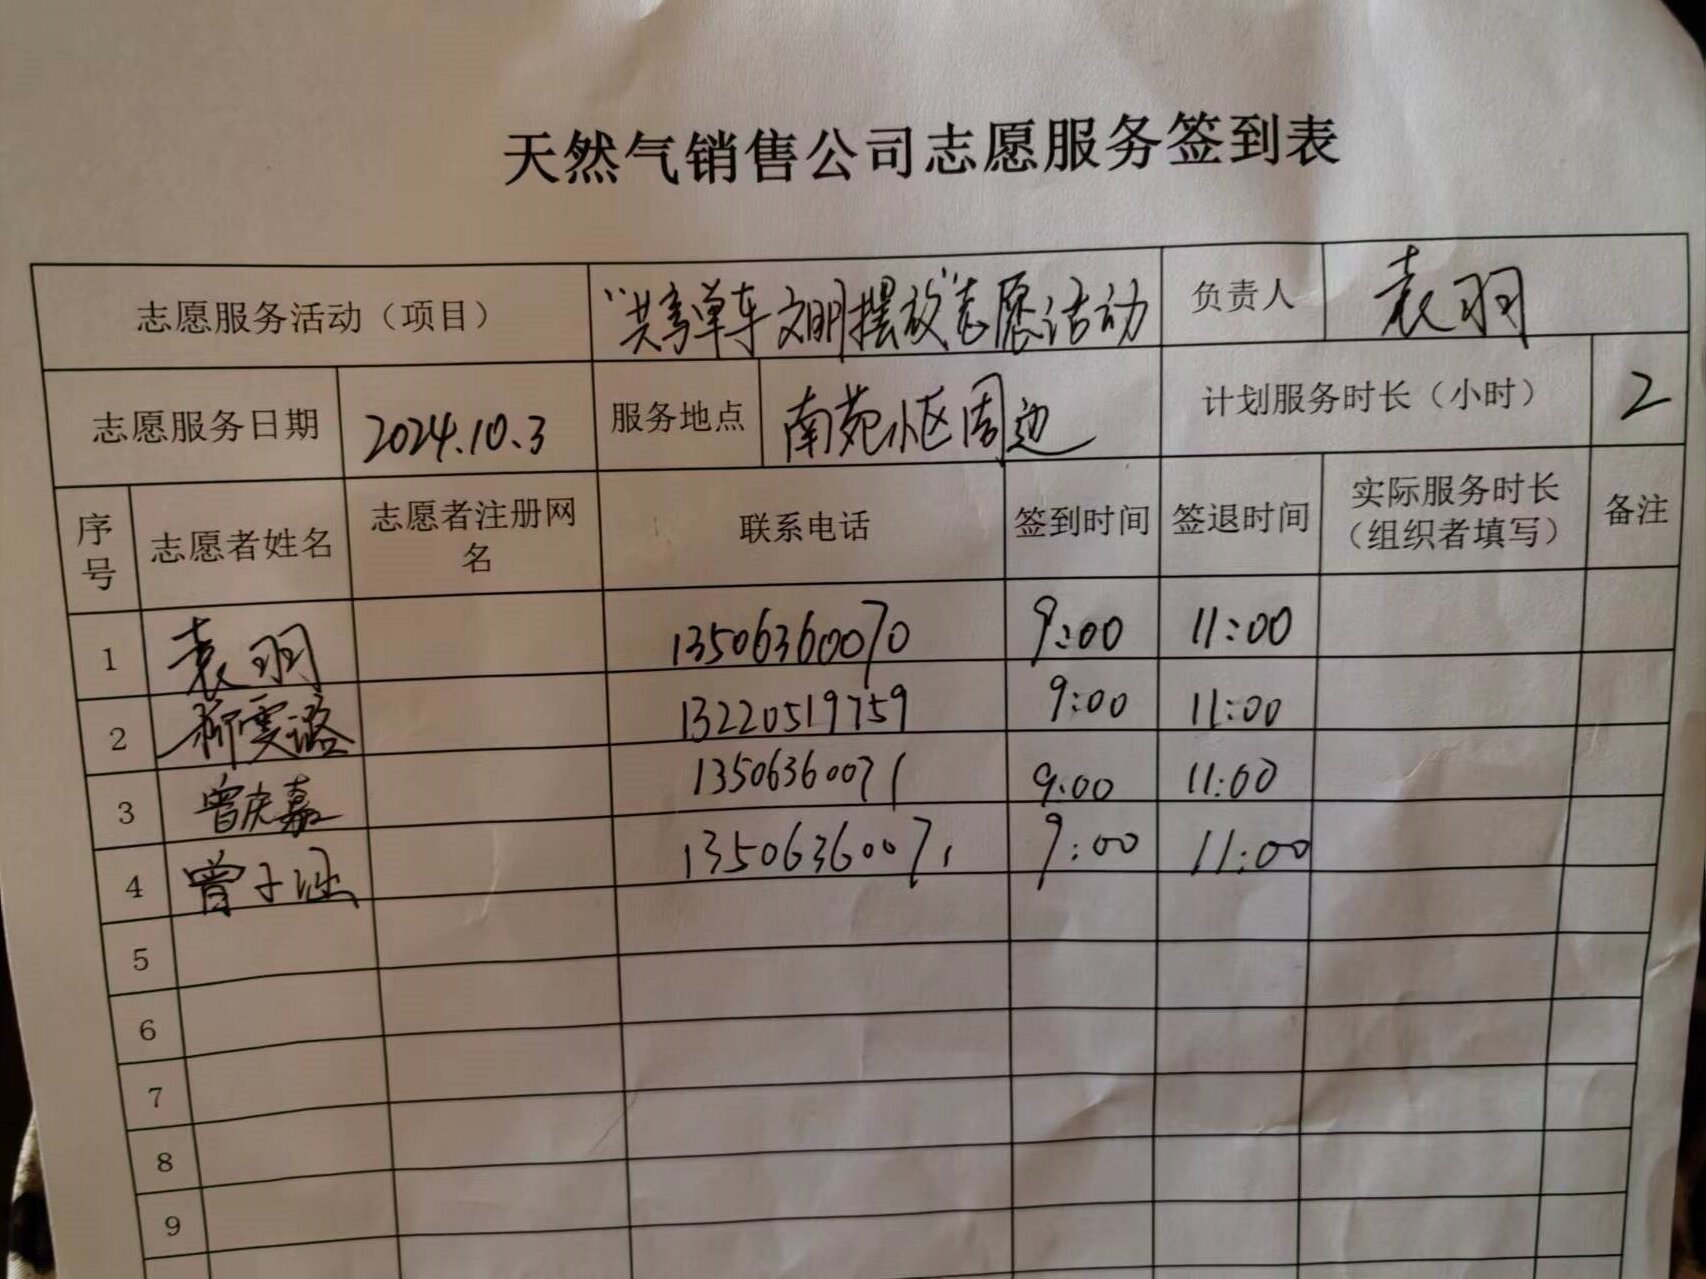 天然气销售公司志愿服务签到表
志愿服务活动（项目） “共享单车文明摆放”志愿活动 负责人 袁羽
志愿服务日期 2024.10.3 服务地点 南苑小区周边 计划服务时长（小时） 2
序号 志愿者姓名 志愿者注册网名 联系电话 签到时间 签退时间 实际服务时长（组织者填写） 备注
1 袁羽 13506360070 9:00 11:00
2 柳雯璐 13220519759 9:00 11:00
3 曾庆嘉 13506360071 9:00 11:00
4 曾子涵 13506360071 9:00 11:00
5
6
7
8
9